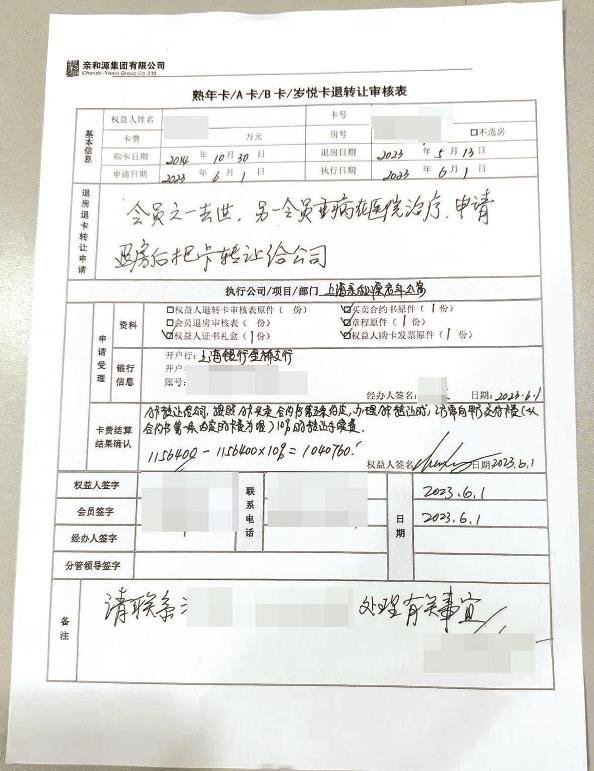 亲和源集团有限公司
Cherish-Yearn Group Co.,Ltd.
熟年卡/A卡/B卡/岁悦卡退转让审核表
基本信息
权益人姓名 卡号
卡费 万元 房号 □不选房
购卡日期 2014年10月30日 退房日期 2023年5月13日
申请日期 2023年6月1日 执行日期 2023年6月1日
退房退卡转让申请
会员之一去世,另一会员重病在医院治疗,申请
退房后把卡转让给公司
执行公司/项目/部门
申请受理
资料
□权益人退转卡审核表原件( 份) ☑买卖合约书原件(1份)
□会员退房审核表( 份) ☑章程原件(1份)
☑权益人证书礼盒(1份) ☑权益人购卡发票原件(1份)
银行信息
开户行:上海银行
开户
账号:
经办人签名: 日期:2023.6.1
卡费结算结果确认
10%的转让手续费.
1156400-1156400×10%=1040760.
权益人签名 日期2023.6.1
权益人签字 联系电话 日期 2023.6.1
会员签字 2023.6.1
经办人签字
分管领导签字
备注
请联系 处理有关事宜